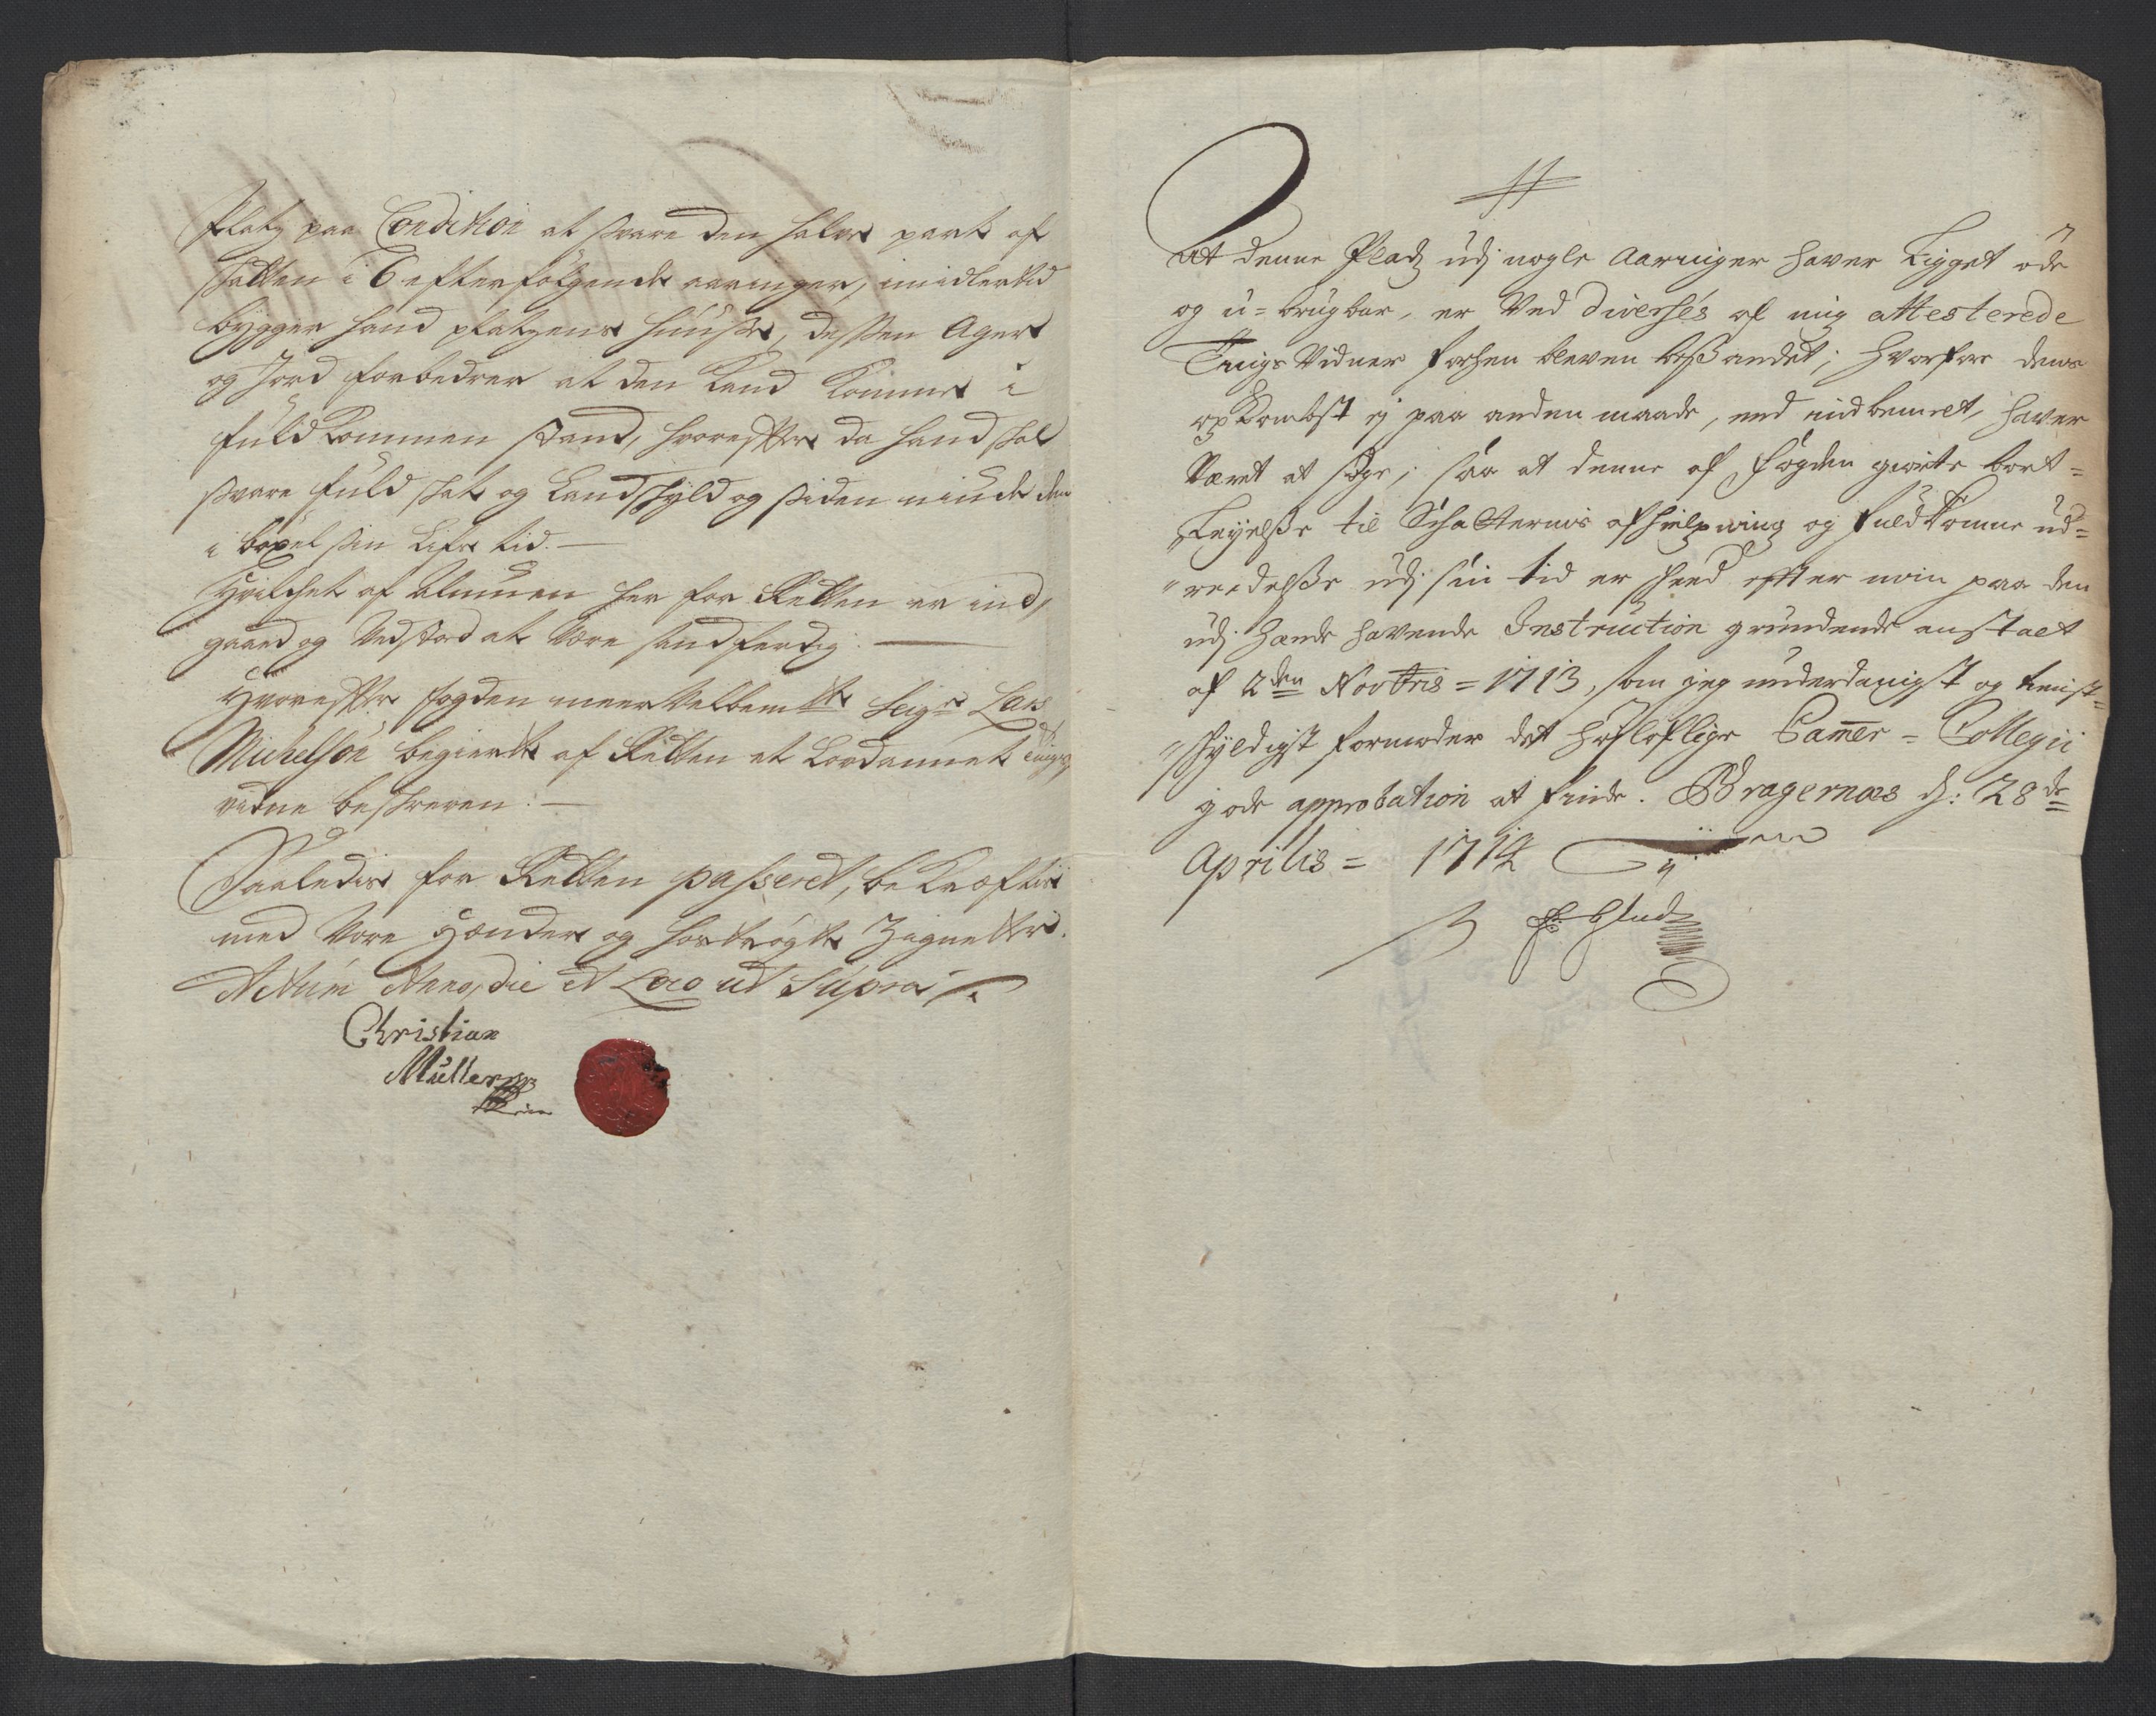 Platz paa Condition at svare den halve part af
skatten i 6 efterfølgende aaringer, imidlertid
bygger hand platzens huuse, dessen Ager
og Jord forbedrer at den kand komme i
fuldkommen stand, hvorefter da hand skal
svare fuld skat og Landskyld og siden niude den
i bøxel sin Lifs tid. —
Hvilchet af Almuen her for Retten er ind,
gaaed og vedstod at være sandferdig. —
Hvorefter fogden meer velbemte Seigr Lars
Michelsøn begierte af Retten et Lovdannet Tings
vidne beskreven. —
Saaledis for Retten passeret, bekræftis
med vore Hænder og hostrøgte Zignetter.
Actum Anno, die et Loco ut Supra
Christian
Müller
At denne Plads udj nogle Aaringer haver Ligget øde
og u=brugbar, er ved diversés af mig attesterede
Tings Vidner forhen bleven beviißandet; hvorfore dens
opkombst ej paa anden maade, end indbemelt, haver
Været at søge; saa at denne af fogden giorte bort=
„Leyelse til Schatternis afhielpning og fuldkomne ud=
„reedelse udj sin tid er skeed efter min paa den
udj hænde havende Instruction grundende anstalt
af 2den Novbris = 1713, som jeg underdanigst og tienst=
„skyldigst formoder det høyloflige Camer = Collegii
gode approbation at finde. Bragernæs d: 28de
Aprilis = 1714